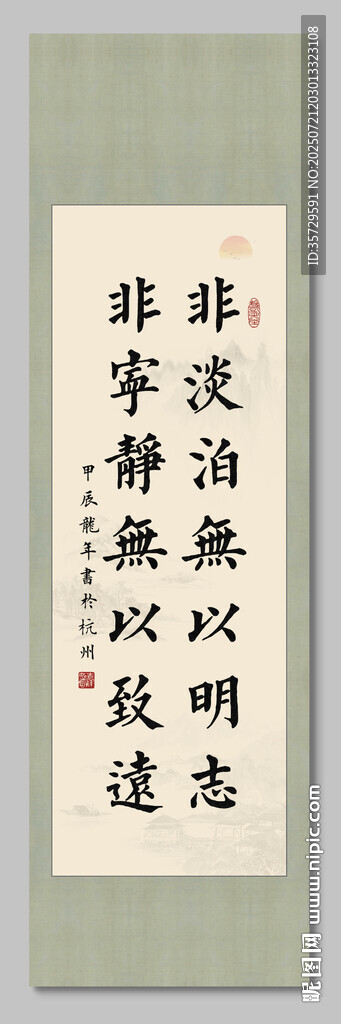 非淡泊無以明志
非寧靜無以致遠
甲辰龍年書於杭州
ID:35729591 NO:20250721203013323108
昵图网 www.nipic.com